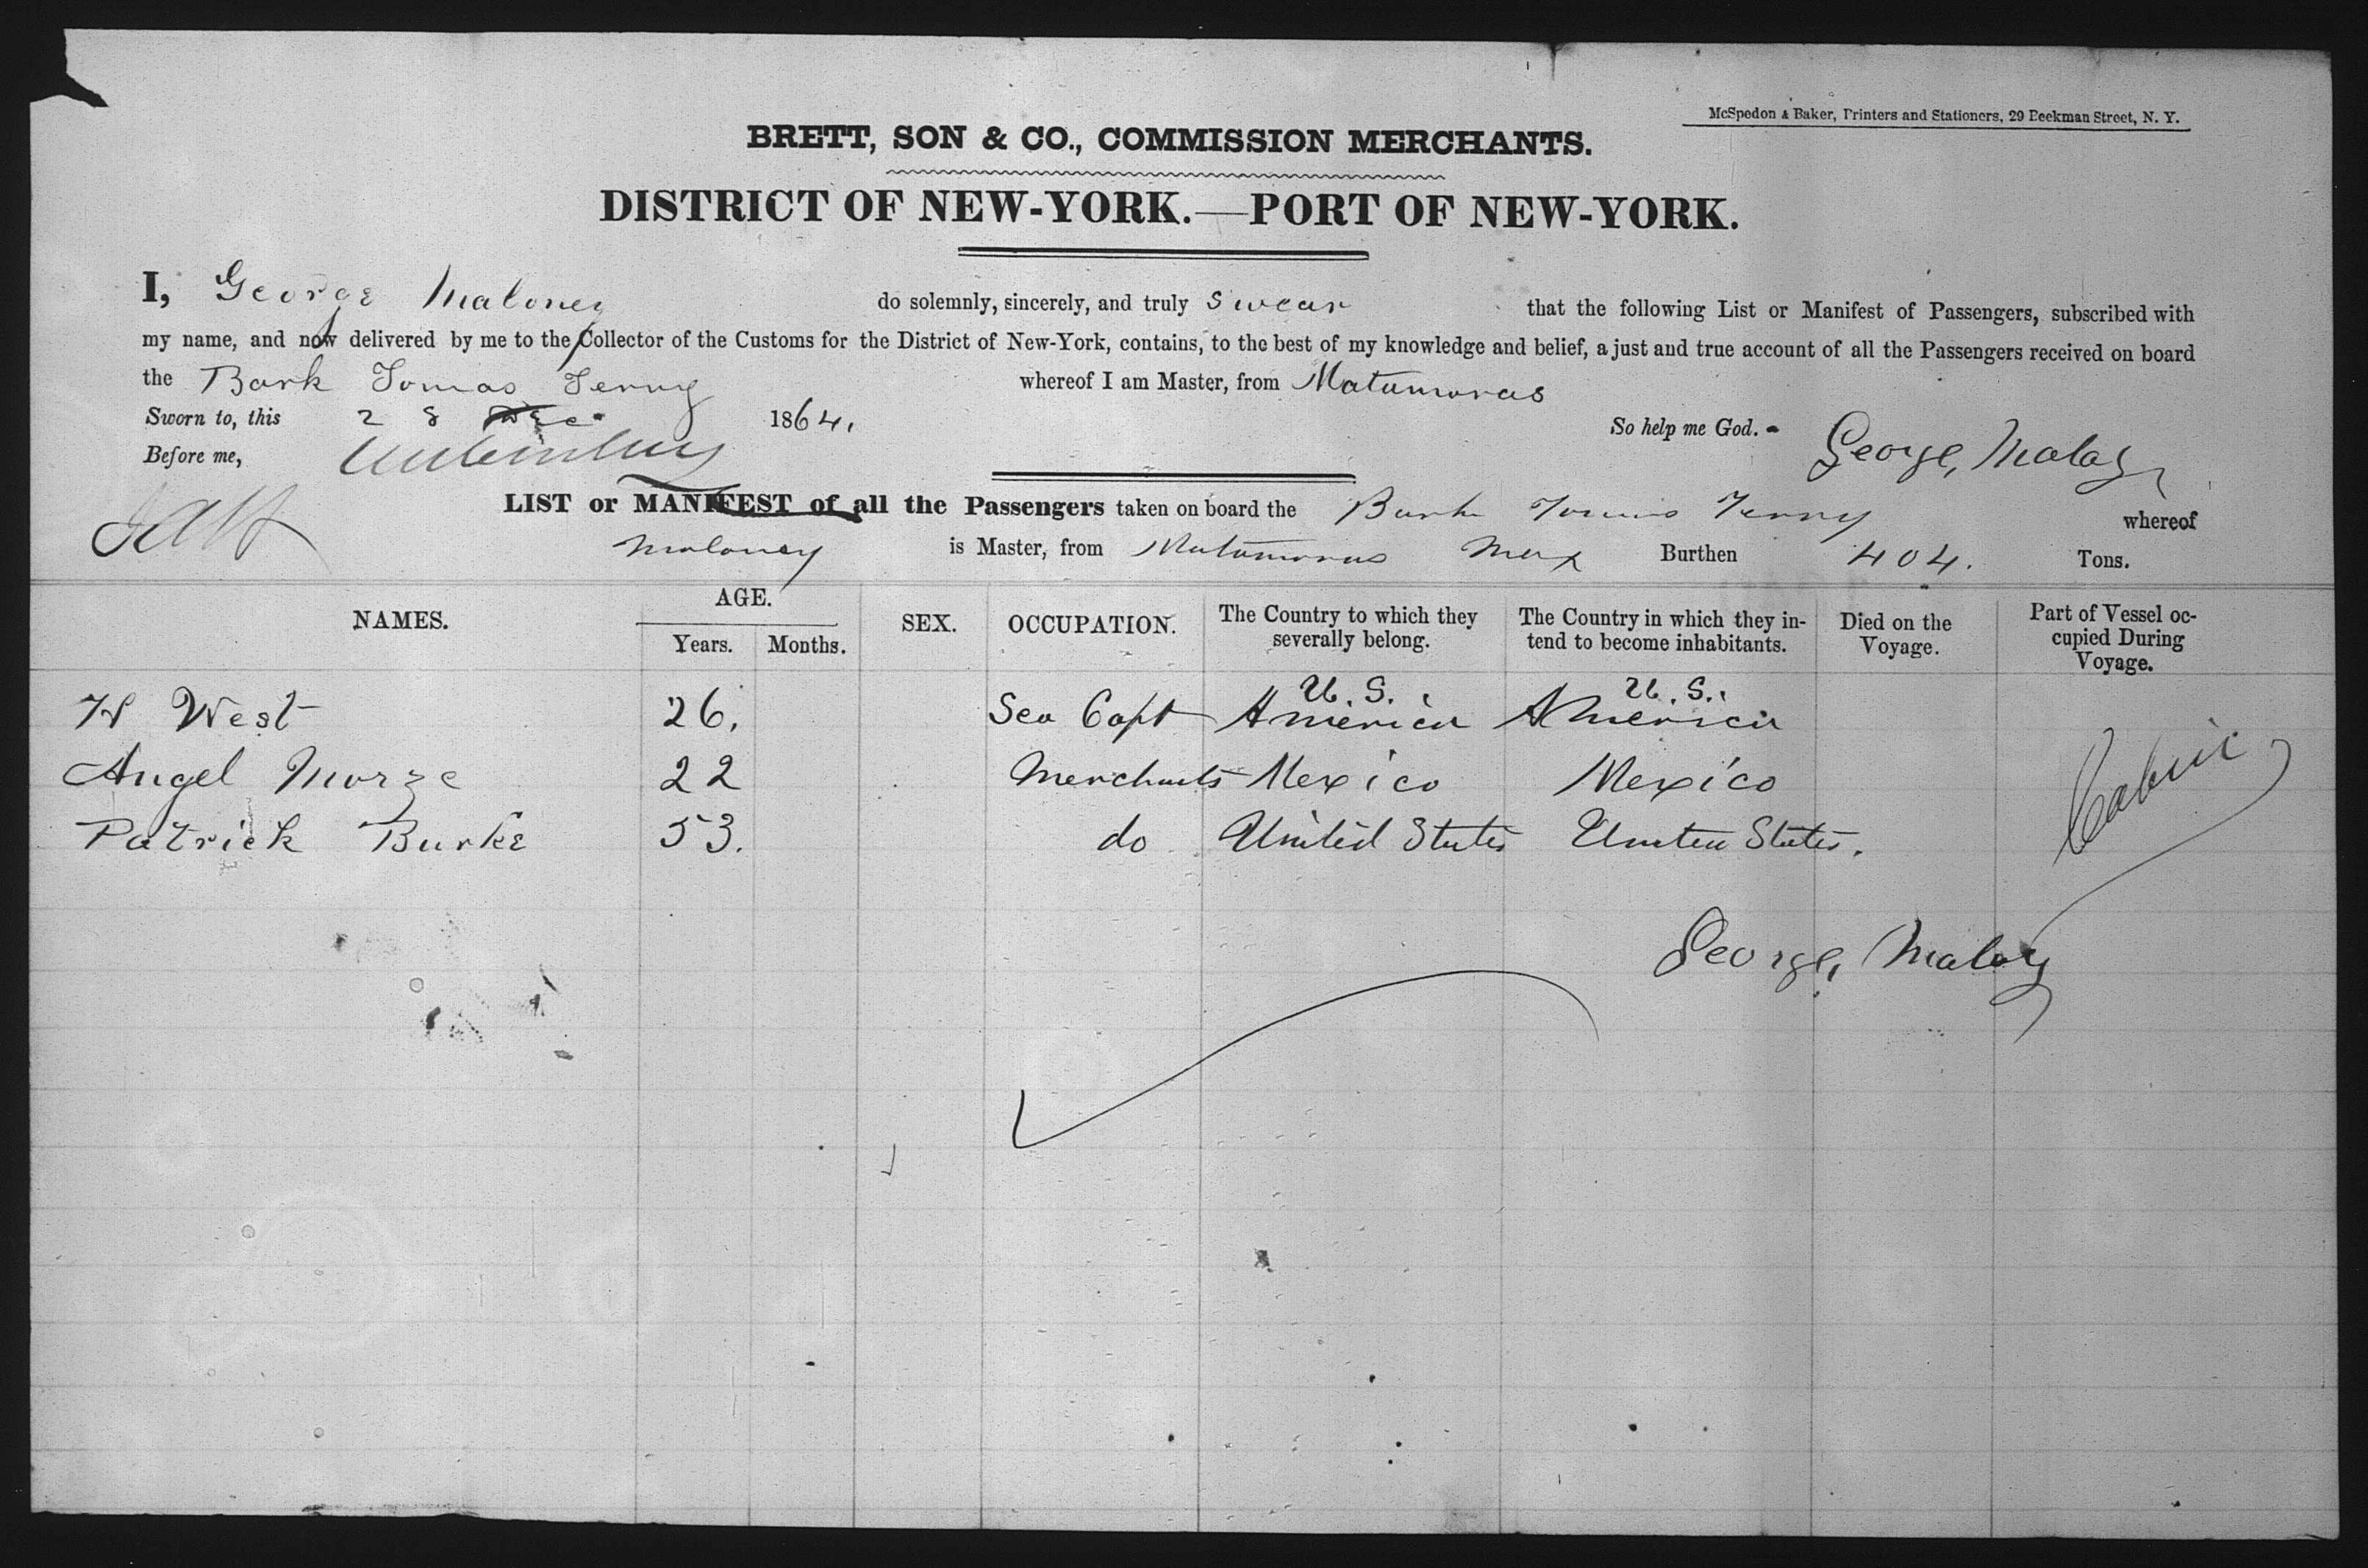 McSpedon & Baker, Printers and Stationers, 29 Beekman Street, N. Y.
BRETT, SON & CO., COMMISSION MERCHANTS.
DISTRICT OF NEW-YORK.—PORT OF NEW-YORK.
I, George Maloney do solemnly, sincerely, and truly swear that the following List or Manifest of Passengers, subscribed with
my name, and now delivered by me to the Collector of the Customs for the District of New-York, contains, to the best of my knowledge and belief, a just and true account of all the Passengers received on board
the Bark Tomas Terry whereof I am Master, from Matamoras
Sworn to, this 28 Dec 1864. So help me God. George Maloney
Before me,
LIST or MANIFEST of all the Passengers taken on board the Bark Tomas Terry whereof
Maloney is Master, from Matamoras Mex Burthen 404. Tons.
NAMES. AGE. Years. Months. SEX. OCCUPATION. The Country to which they severally belong. The Country in which they intend to become inhabitants. Died on the Voyage. Part of Vessel occupied During Voyage.
W West 26. Sea Capt U. S. America U. S. America
Angel Morze 22 Merchants Mexico Mexico Cabin
Patrick Burke 53. do United States United States.
George Maloney